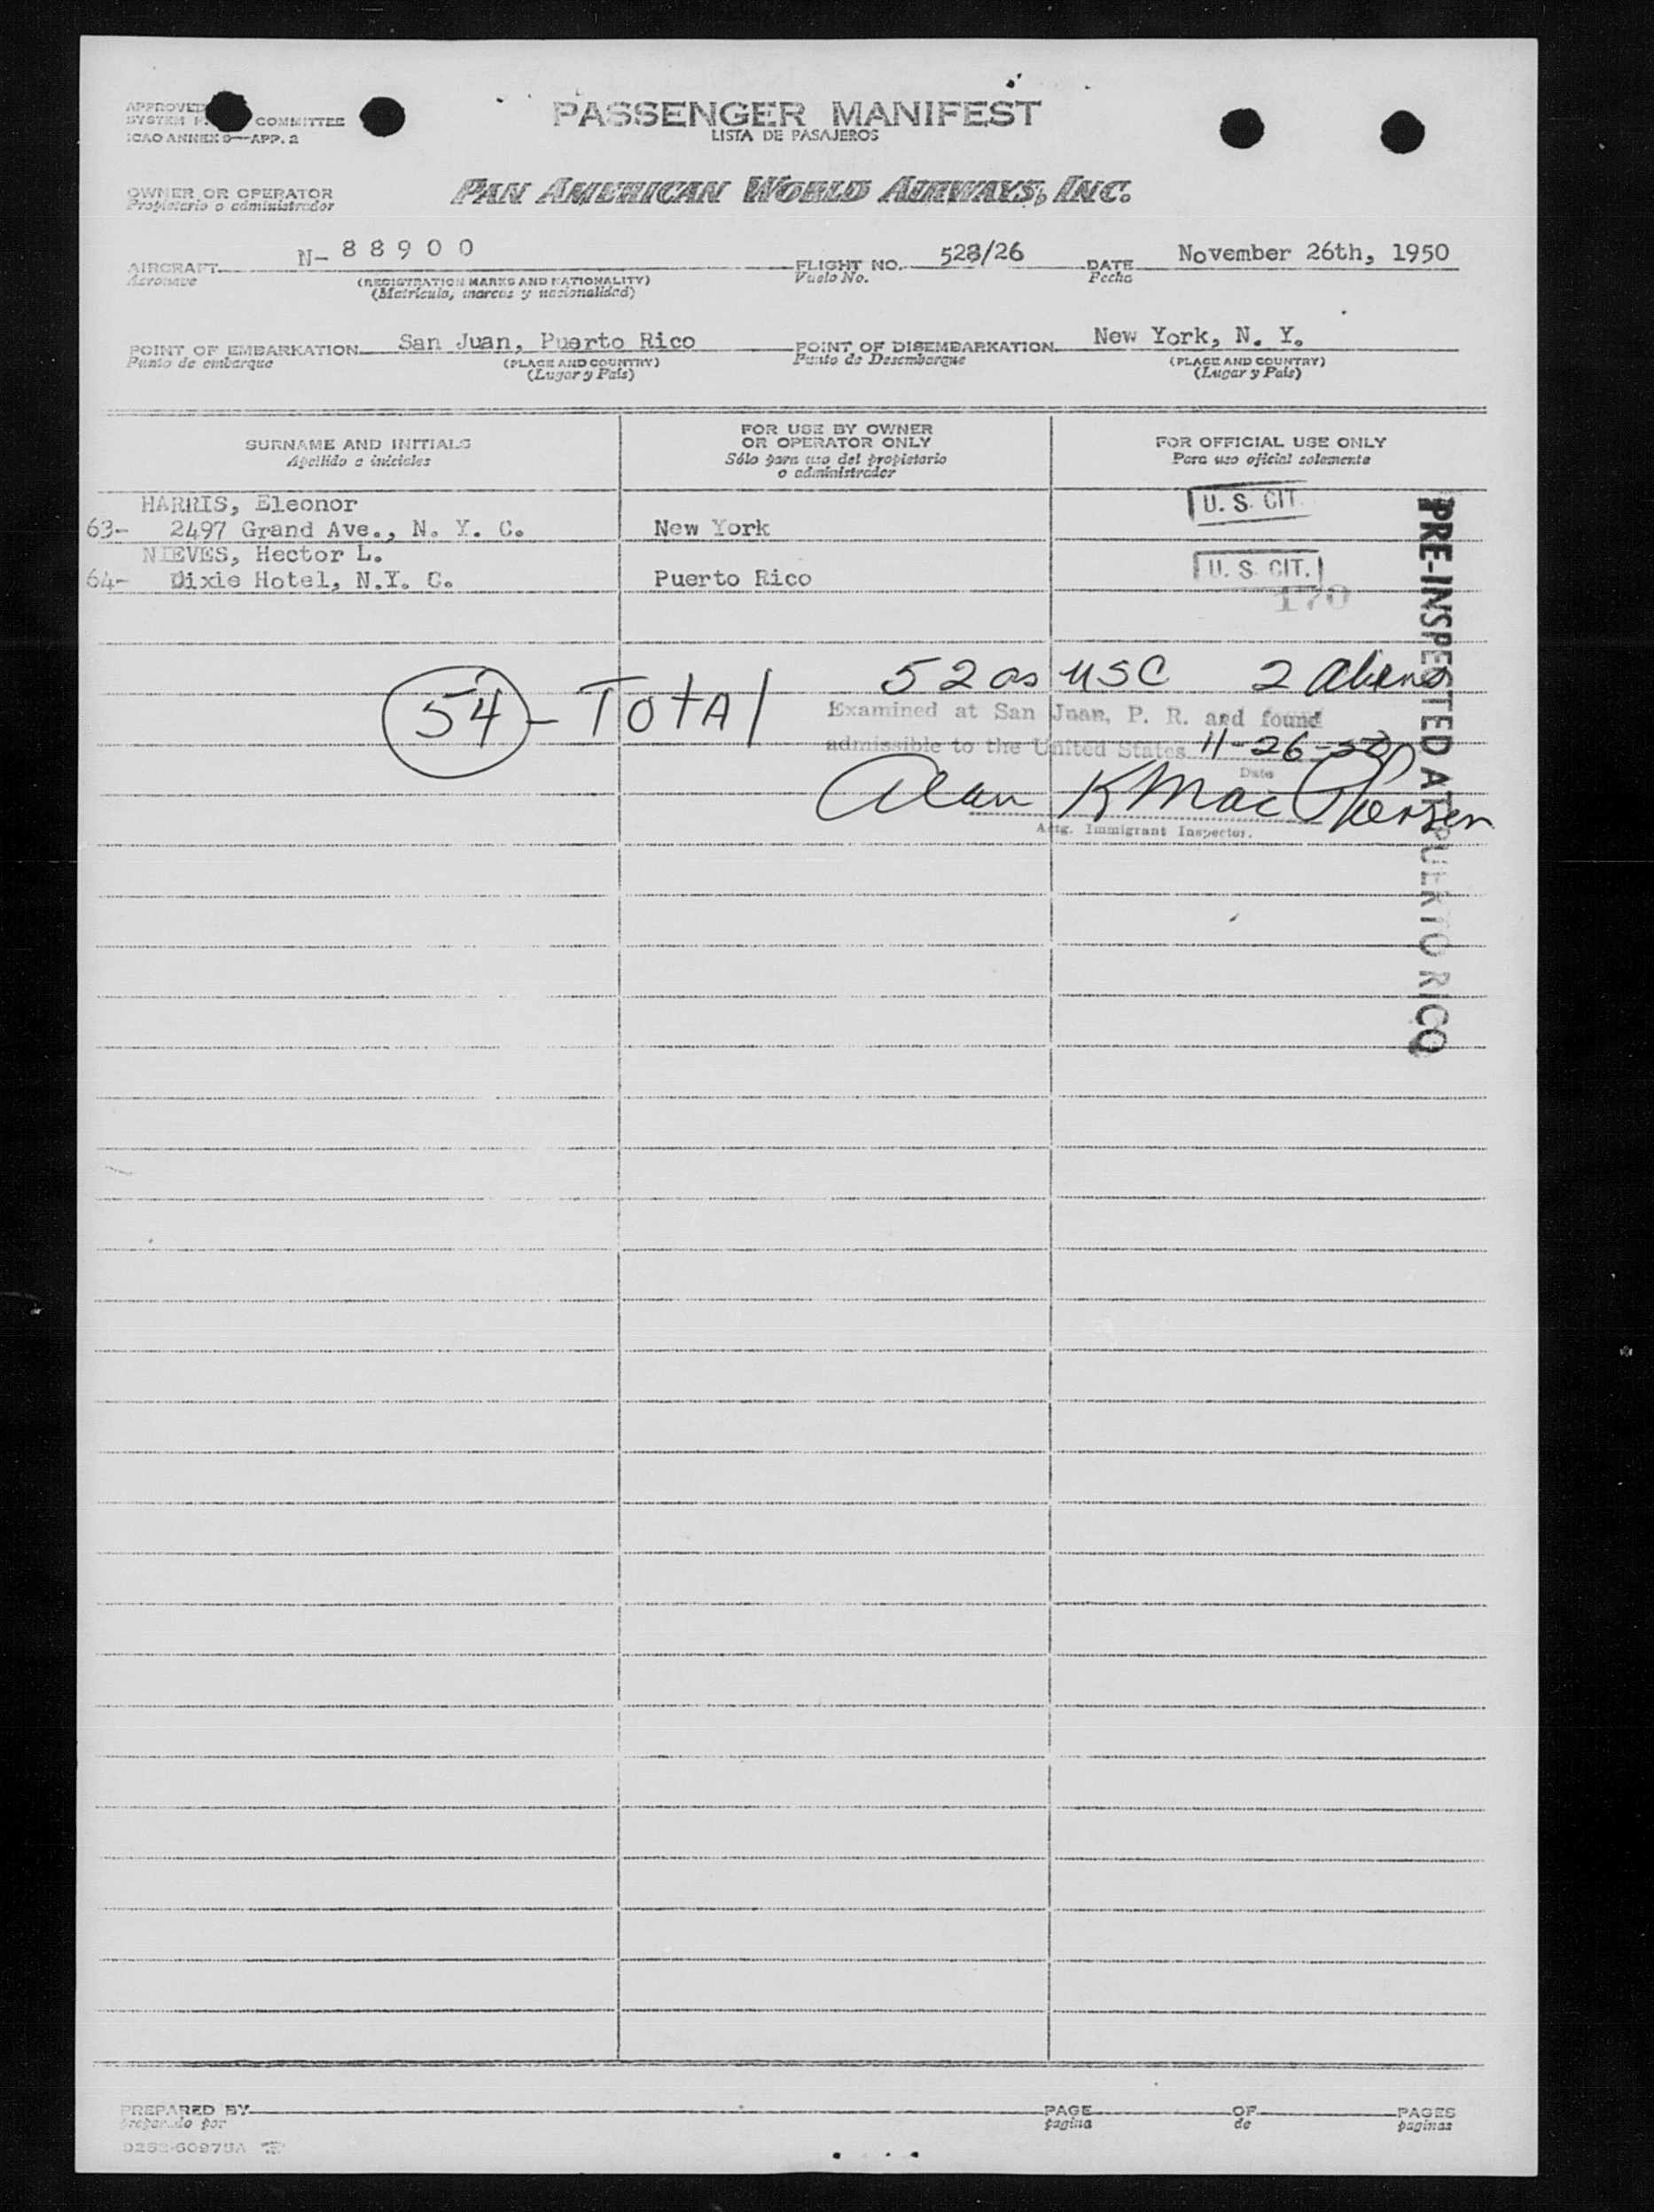 APPROVED
SYSTEM COMMITTEE
ICAO ANNEX 9—APP. 2
PASSENGER MANIFEST
LISTA DE PASAJEROS
OWNER OR OPERATOR
Propietario o administrador
PAN AMERICAN WORLD AIRWAYS, INC.
AIRCRAFT N- 88900 FLIGHT NO. 528/26 DATE November 26th, 1950
Aeronave (REGISTRATION MARKS AND NATIONALITY) Vuelo No. Fecha
(Matrícula, marcas y nacionalidad)
POINT OF EMBARKATION San Juan, Puerto Rico POINT OF DISEMBARKATION New York, N. Y.
Punto de embarque (PLACE AND COUNTRY) Punto de Desembarque (PLACE AND COUNTRY)
(Lugar y País) (Lugar y País)
SURNAME AND INITIALS
Apellido e iniciales
FOR USE BY OWNER
OR OPERATOR ONLY
Sólo para uso del propietario
o administrador
FOR OFFICIAL USE ONLY
Para uso oficial solamente
HARRIS, Eleonor U. S. CIT.
63- 2497 Grand Ave., N. Y. C. New York
NIEVES, Hector L. U. S. CIT.
64- Dixie Hotel, N.Y. C. Puerto Rico
170
PRE-INSPECTED AT PUERTO RICO
52 as USC 2 Aliens
54 - TOTAl
Examined at San Juan, P. R. and found
admissible to the United States 11-26-50
Date
Alan K MacPherson
Actg. Immigrant Inspector.
PREPARED BY PAGE OF PAGES
Preparado por página de páginas